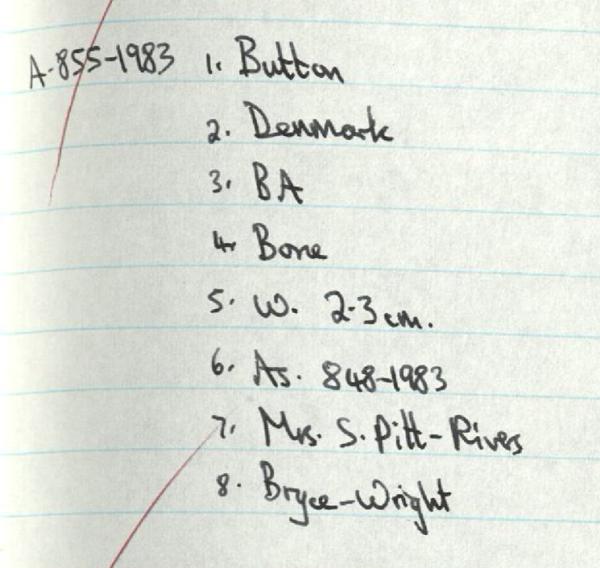 A-855-1983 1. Button
2. Denmark
3. BA
4. Bone
5. W. 2.3 cm.
6. As. 848-1983
7. Mrs. S. Pitt-Rivers
8. Bryce-Wright